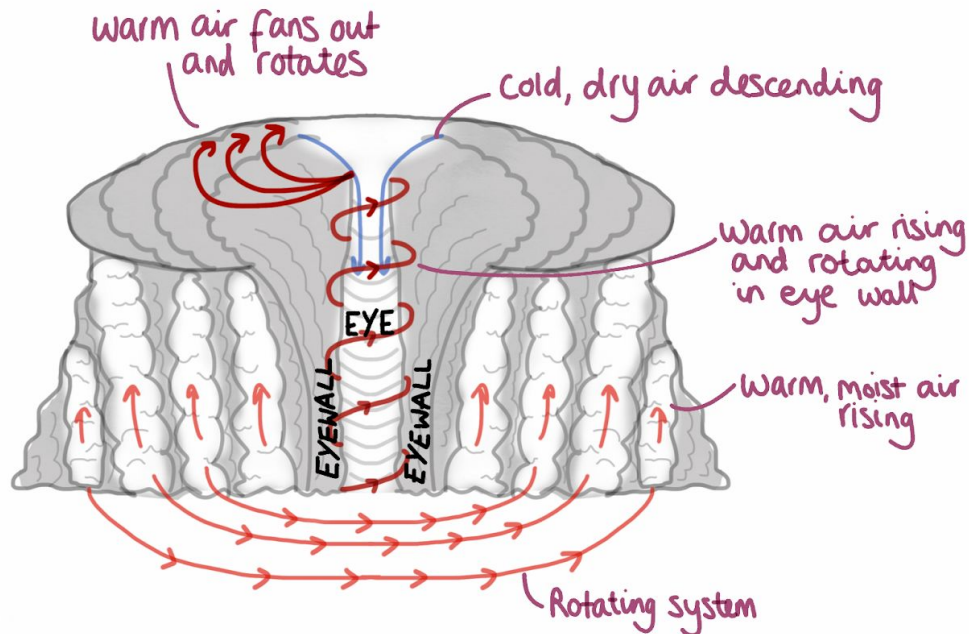 warm air fans out
and rotates
cold, dry air descending
warm air rising
and rotating
in eye wall
EYE
EYEWALL
EYEWALL
warm, moist air
rising
Rotating system